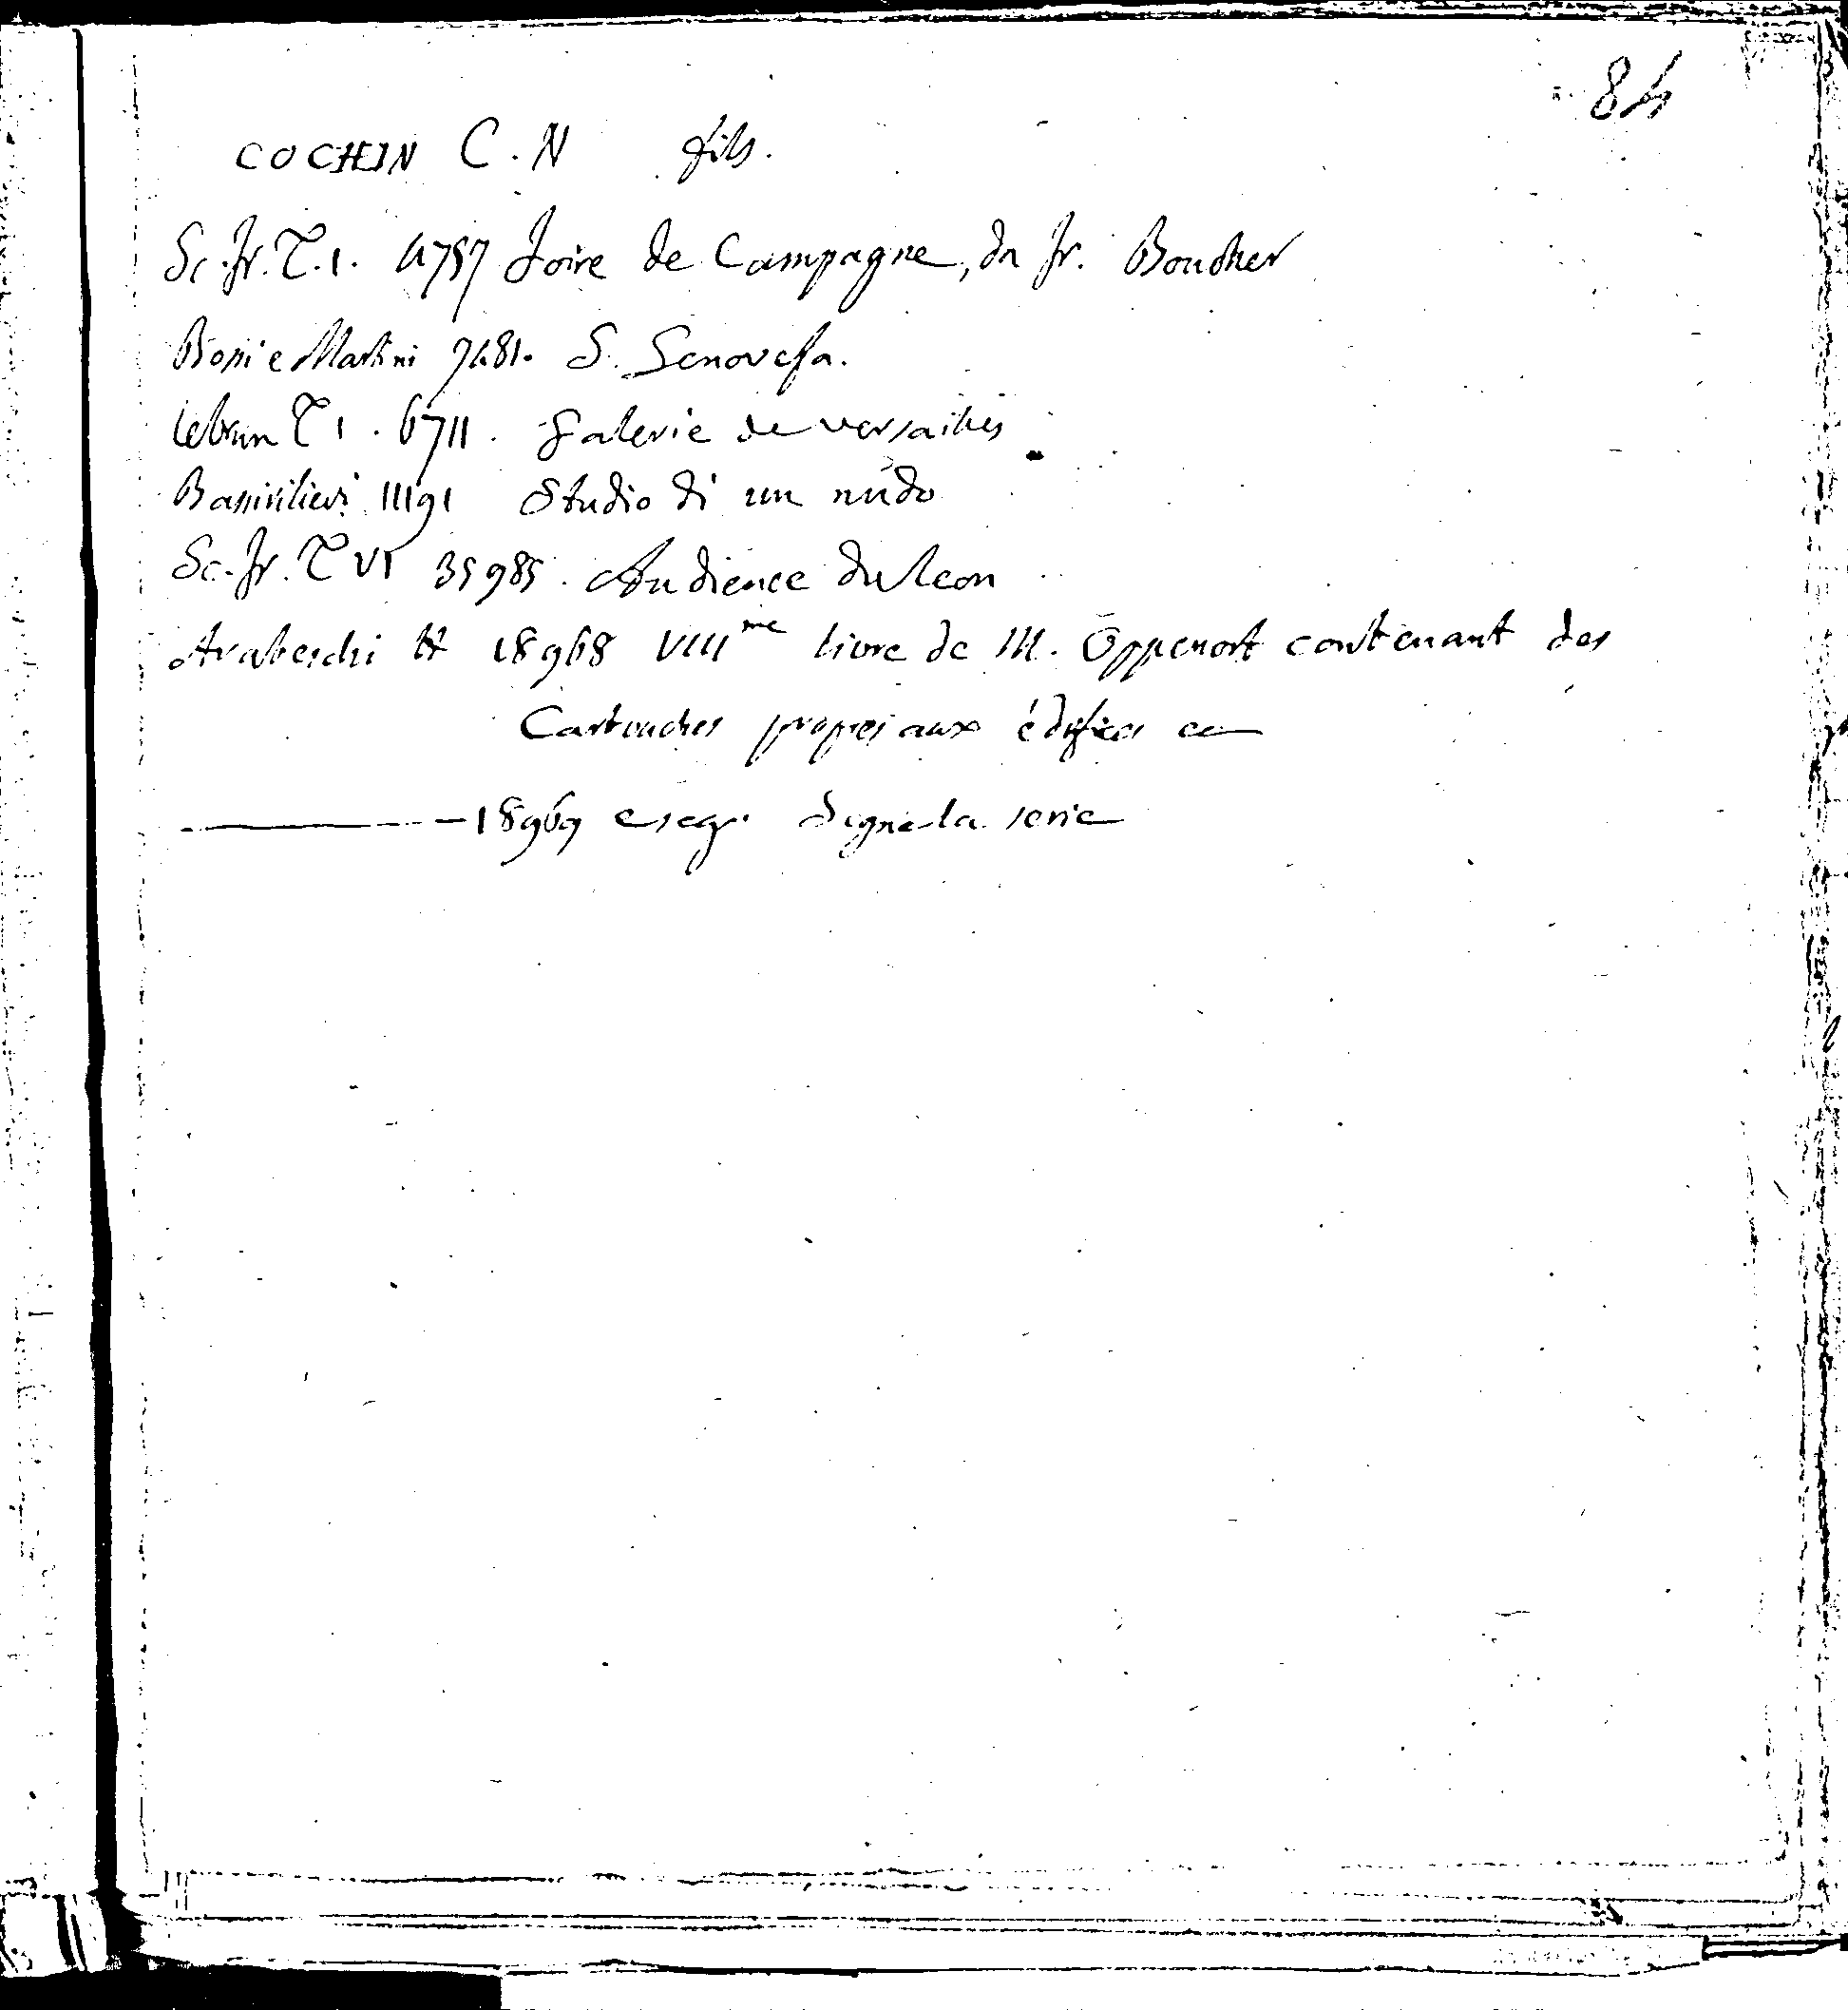 84
COCHIN C. N fils.
Sc. fr. T. 1. 4757 Foire de Campagne, da fr. Boucher
Bossi e Martini 7481. S. Genoveffa.
Lebrun T 1. 6711. Galerie de Versailles
Bassirilievi 11191 Studio di un nudo
Sc. fr. T VI 35985. Audience du Leon
Arabeschi II 18968 VIII me livre de M. Oppenort contenant des
Cartouches propres aux édifices
18969 e seg. segue la serie